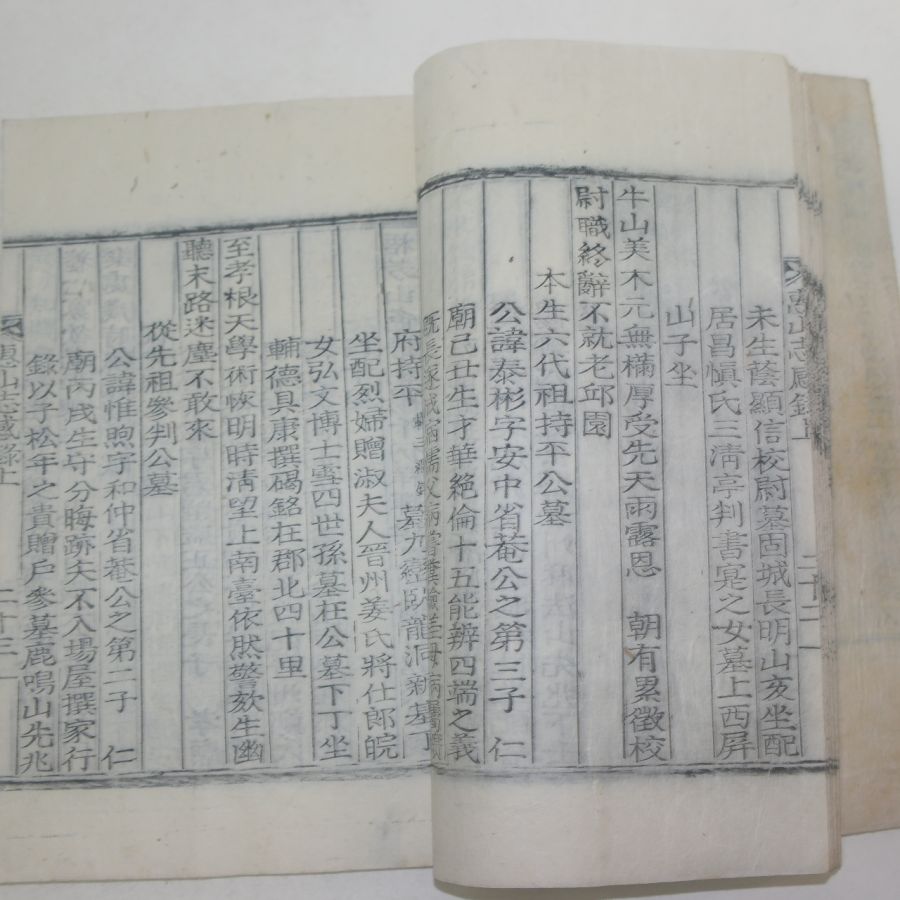 未生蔭顯信校尉墓固城長明山亥坐配
居昌愼氏三淸亭判書㝠之女墓上西屛
山子坐
牛山美木元無橚厚受先天雨露恩 朝有累徵校
尉職終辭不就老邱園
本生六代祖持平公墓
公諱泰彬字安中省菴公之第三子 仁
廟己丑生才華絶倫十五能辨四端之義
旣長遂成病
府持平 墓九 臥龍洞新基丁
坐配烈婦贈淑夫人晉州姜氏將仕郞皖
女弘文博士雪四世孫墓在公墓下丁坐
輔德具康撰碣銘在郡北四十里
至孝根天學術恢明時淸望上南臺依然警欬生幽
聽末路迷塵不敢來
從先祖參判公墓
公諱惟煦字和仲省菴公之第二子 仁
廟丙戌生守分晦跡夫不入場屋撰家行
錄以子松年之貴贈戶參墓鹿鳴山先兆
惠山志感錄上 二十三